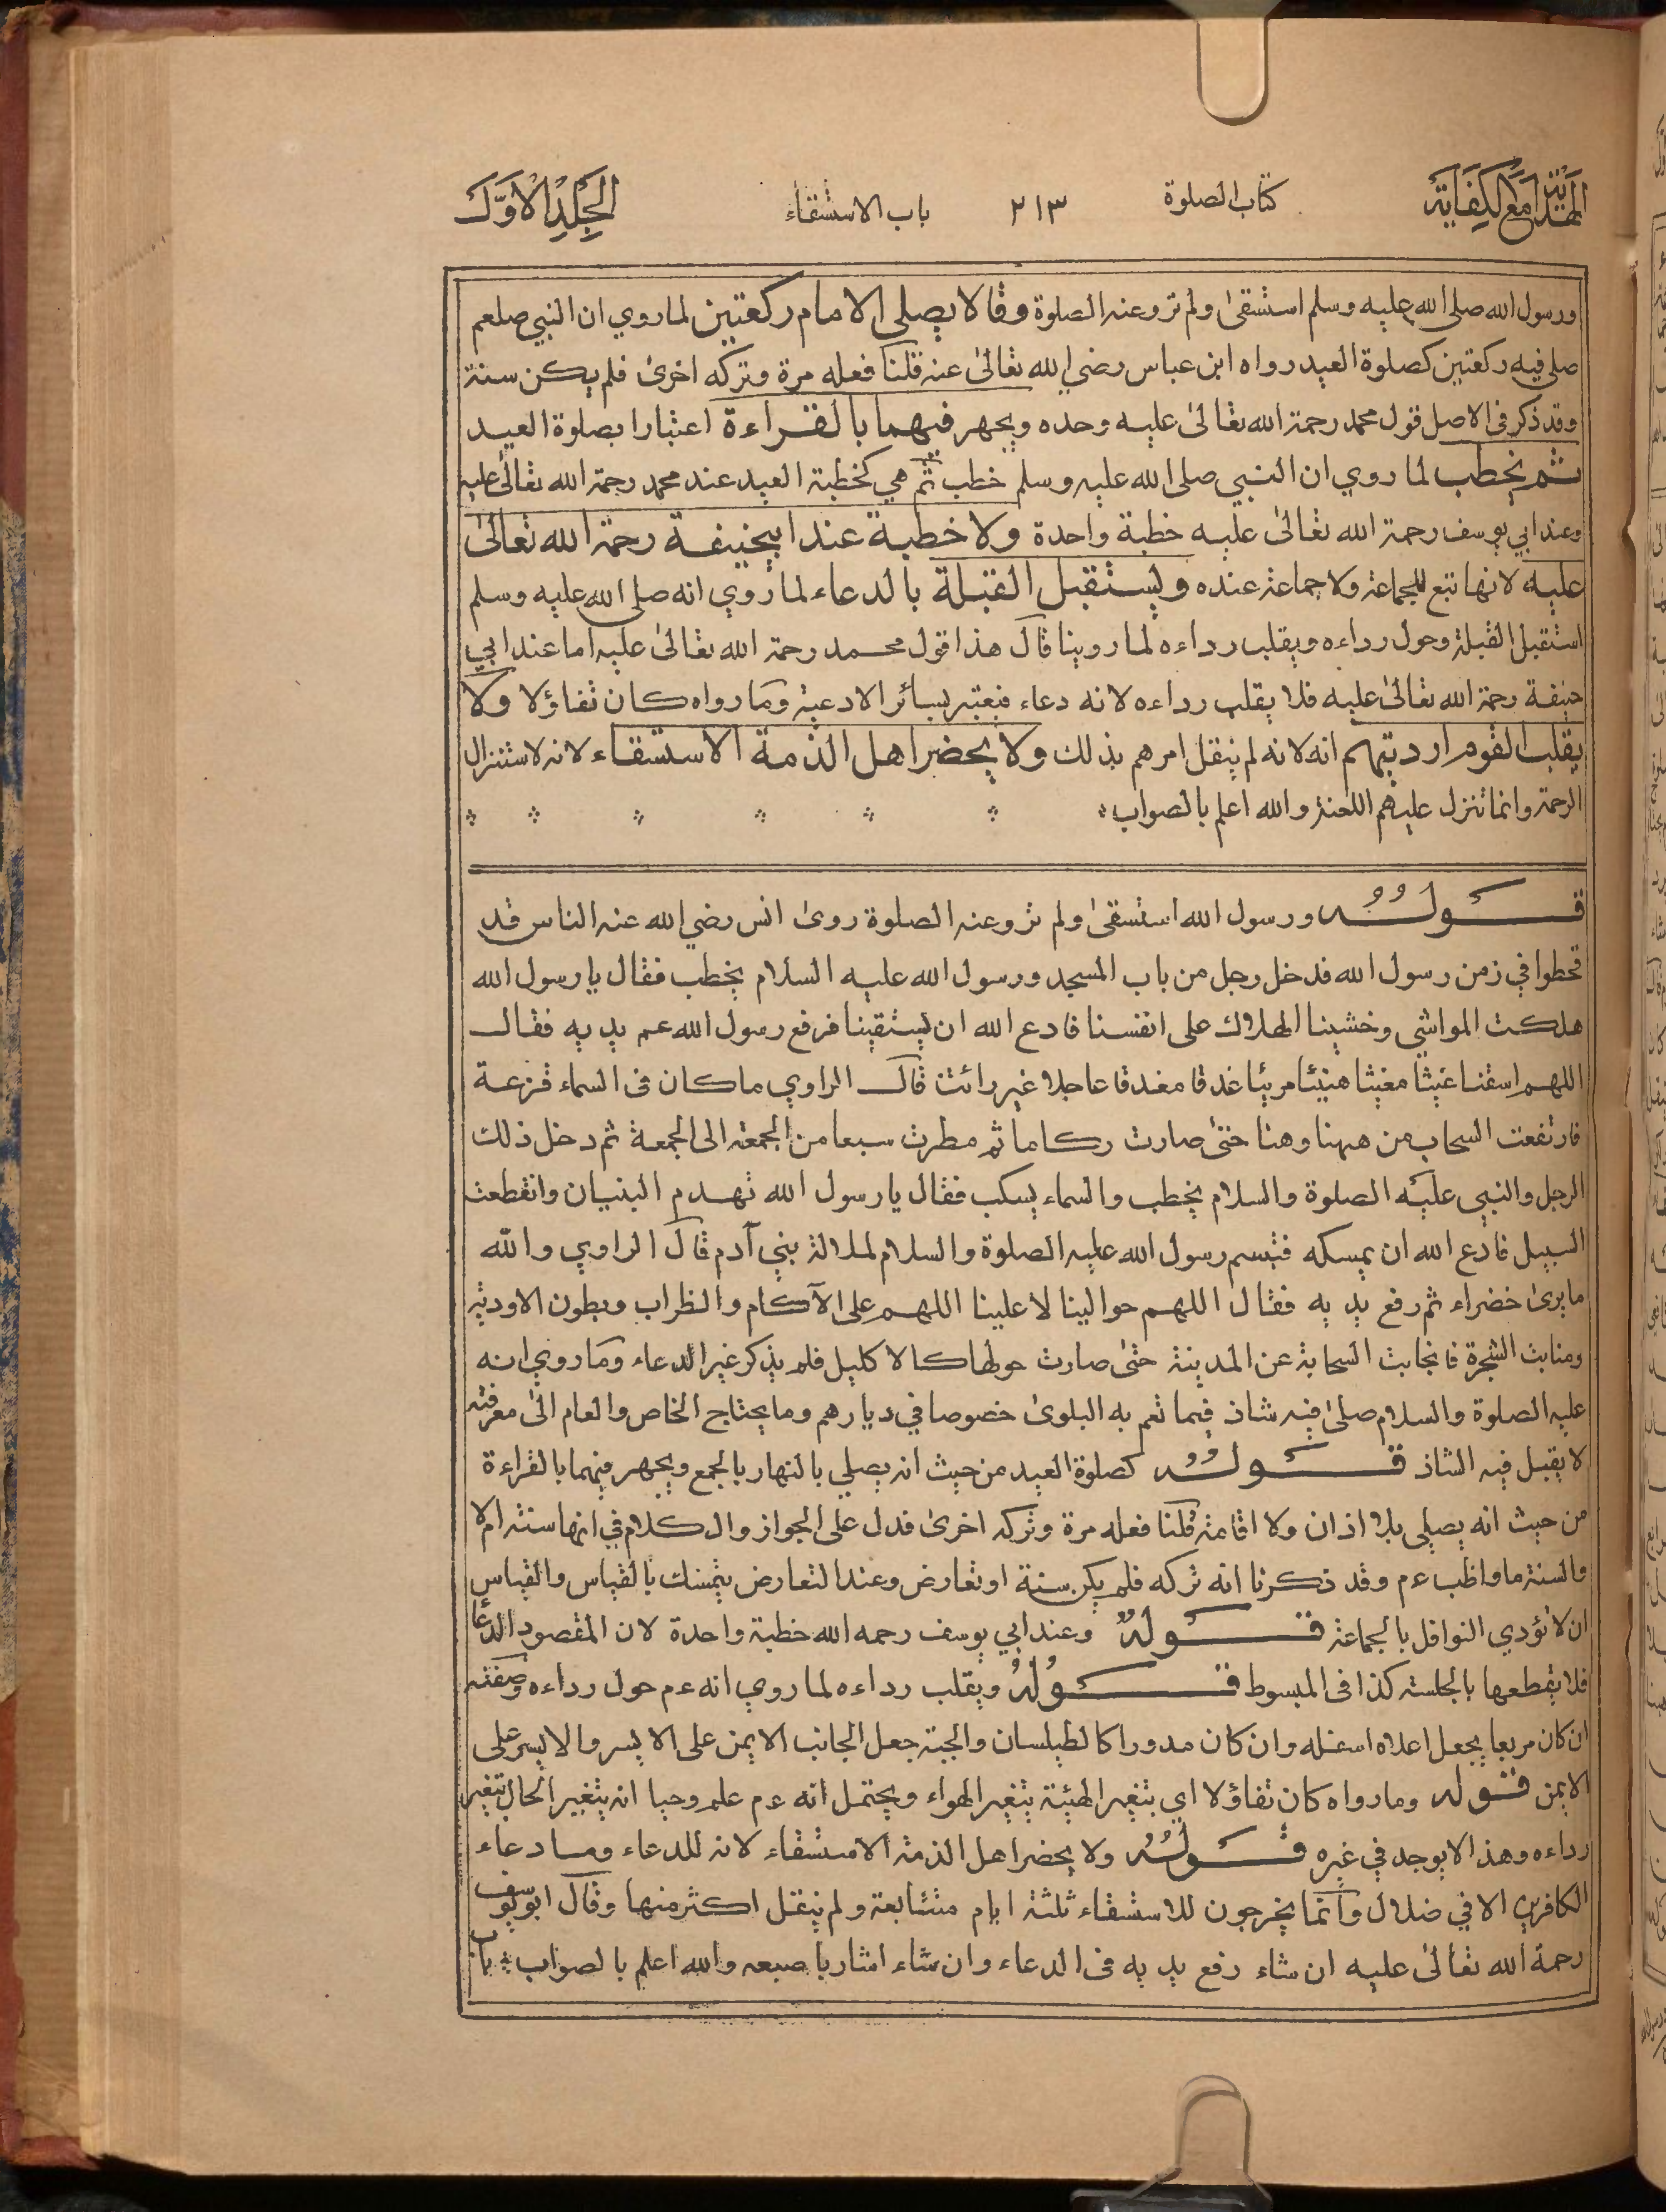 الهداية مع الكفاية
كتاب الصلوة
٢١٣
باب الاستسقاء
الجلد الاول
ورسول الله صلى الله عليه وسلم استسقىٰ ولم تروعنه الصلوة وقالا يصلى الامام ركعتين لماروي ان النبي صلعم
صلى فيه ركعتين كصلوة العيد رواه ابن عباس رضي الله تعالىٰ عنه قلنا فعله مرة وتركه اخرىٰ فلم يكن سنة
وقد ذكر فى الاصل قول محمد رحمة الله تعالىٰ عليه وحده ويجهر فيهما بالقراءة اعتبارا بصلوة العيد
ثم يخطب لما روي ان النبي صلى الله عليه وسلم خطب ثم هي كخطبة العيد عند محمد رحمة الله تعالىٰ عليه
وعند ابي يوسف رحمة الله تعالىٰ عليه خطبة واحدة ولا خطبة عند ابيحنيفة رحمة الله تعالىٰ
عليه لانها تبع للجماعة ولا جماعة عنده ويستقبل القبلة بالدعاء لما روي انه صلى الله عليه وسلم
استقبل القبلة وحول رداءه ويقلب رداءه لما روينا قال هذا قول محمد رحمة الله تعالىٰ عليه اما عند ابي
حنيفة رحمة الله تعالىٰ عليه فلا يقلب رداءه لانه دعاء فيعتبر بسائر الادعية وما رواه كان تفاؤلا ولا
يقلب القوم ارديتهم انه لانه لم ينقل امرهم بذلك ولا يحضر اهل الذمة الاستسقاء لانه لاستنزال
الرحمة وانما تنزل عليهم اللعنة والله اعلم بالصواب
قولهُ ورسول الله استسقىٰ ولم تروعنه الصلوة روىٰ انس رضي الله عنه الناس قد
قحطوا في زمن رسول الله فدخل رجل من باب المسجد ورسول الله عليه السلام يخطب فقال يا رسول الله
هلكت المواشي وخشينا الهلاك على انفسنا فادع الله ان يستقينا فرفع رسول الله عم يديه فقال
اللهم اسقنا غيثا مغيثا هنيئا مريئا غدقا مغدقا عاجلا غير رائث قال الراوي ما كان فى السماء قزعة
فارتفعت السحاب من ههنا وهنا حتىٰ صارت ركاما ثم مطرت سبعا من الجمعة الى الجمعة ثم دخل ذلك
الرجل والنبي عليه الصلوة والسلام يخطب والسماء يسكب فقال يا رسول الله تهدم البنيان وانقطعت
السبيل فادع الله ان يمسكه فتبسم رسول الله عليه الصلوة والسلام لملالة بني آدم قال الراوي والله
مايرىٰ خضراء ثم رفع يديه فقال اللهم حوالينا لا علينا اللهم على الآكام والظراب وبطون الاودية
ومنابت الشجرة فانجابت السحابة عن المدينة حتىٰ صارت حولها كالاكليل فلم يذكر غير الدعاء وما روي انه
عليه الصلوة والسلام صلىٰ فيه شاذ فيما تعم به البلوىٰ خصوصا في ديارهم وما يحتاج الخاص والعام الىٰ معرفته
لا يقبل فيه الشاذ قولهُ كصلوة العيد من حيث انه يصلي بالنهار بالجمع ويجهر فيهما بالقراءة
من حيث انه يصلى بلا اذان ولا اقامة قلنا فعله مرة وتركه اخرىٰ فدل على الجواز والكلام في انها سنة ام لا
والسنة ما واظب عم وقد ذكرنا انه تركه فلم يكن سنة او تعارض وعند التعارض يتمسك بالقياس والقياس
ان لا تؤدي النوافل بالجماعة قولهُ وعند ابي يوسف رحمه الله خطبة واحدة لان المقصود الدعا
فلا يقطعها بالجلسة كذا فى المبسوط قولهُ ويقلب رداءه لما روي انه عم حول رداءه وصفته
ان كان مربعا يجعل اعلاه اسفله وان كان مدورا كالطيلسان والجبة جعل الجانب الايمن على الايسر والايسر على
الايمن قوله ومارواه كان تفاؤلا اي بتغير الهيئة يتغير الهواء ويحتمل انه عم علم وحيا انه يتغير الحال بتغير
رداءه وهذا لايوجد في غيره قولهُ ولا يحضر اهل الذمة الاستسقاء لانه للدعاء وما دعاء
الكافرين الا في ضلال وانما يخرجون للاستسقاء ثلثة ايام متتابعة ولم ينقل اكثر منها وقال ابو يوسف
رحمة الله تعالىٰ عليه ان شاء رفع يديه فى الدعاء وان شاء اشار باصبعه والله اعلم بالصواب باب